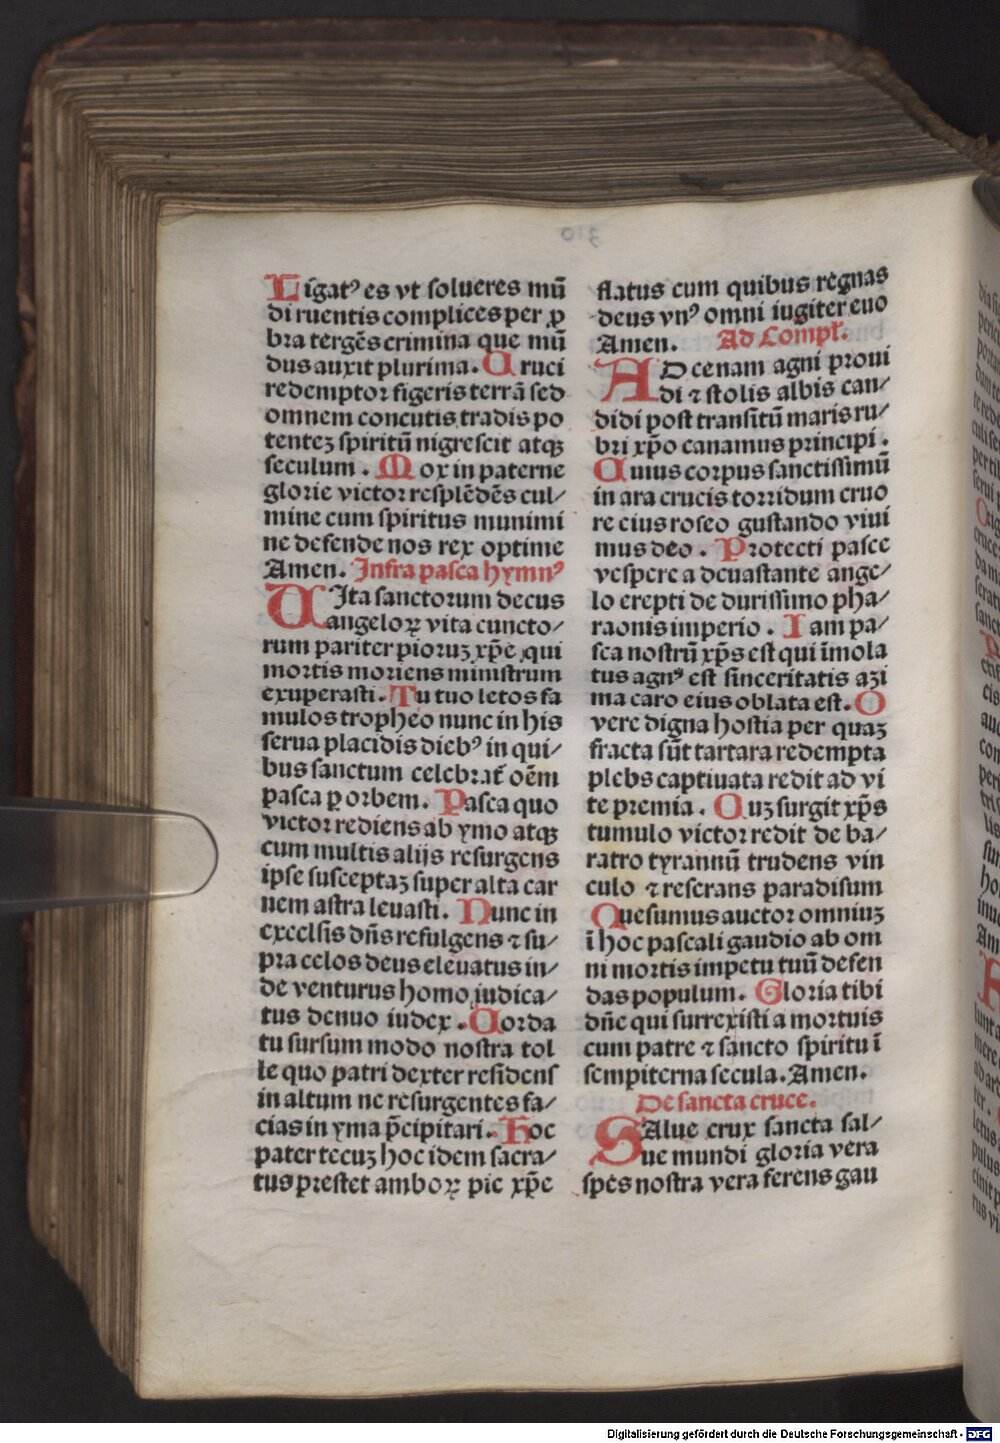 Ligatꝰ es vt solueres mū
di ruentis complices per ꝓ
bra tergēs crimina que mū
dus auxit plurima. Cruci
redemptor figeris terrā sed
omnem concutis tradis po
tenteꝫ spiritū nigrescit atqꝫ
seculum. Mox in paterne
glorie victor resplēdēs cul⸗
mine cum spiritus munimi
ne defende nos rex optime
Amen. Infra pasca hymnꝰ
VIta sanctorum decus
angeloꝝ vita cuncto⸗
rum pariter pioruꝫ xp̄e qui
mortis moriens ministrum
exuperasti. Tu tuo letos fa
mulos tropheo nunc in his
serua placidis diebꝰ in qui⸗
bus sanctum celebrat̄ oēm
pasca ꝑ orbem. Pasca quo
victor rediens ab ymo atqꝫ
cum multis alijs resurgens
ipse susceptaꝫ super alta car
nem astra leuasti. Nunc in
excelsis dn̄s refulgens ⁊ su⸗
pra celos deus eleuatus in⸗
de venturus homo iudica⸗
tus denuo iudex. Corda
tu sursum modo nostra tol
le quo patri dexter residens
in altum ne resurgentes fa⸗
cias in yma p̄cipitari. Hoc
pater tecuꝫ hoc idem sacra⸗
tus prestet amboꝝ pie xp̄e
flatus cum quibus regnas
deus vnꝰ omni iugiter euo
Amen. Ad Compl̄.
AD cenam agni proui
di ⁊ stolis albis can⸗
didi post transitū maris ru⸗
bri xp̄o canamus principi.
Cuius corpus sanctissimū
in ara crucis torridum cruo
re eius roseo gustando viui
mus deo. Protecti pasce
vespere a deuastante ange⸗
lo erepti de durissimo pha⸗
raonis imperio. Iam pa⸗
sca nostrū xp̄s est qui īmola
tus agnꝰ est sinceritatis azi
ma caro eius oblata est. O
vere digna hostia per quaꝫ
fracta sūt tartara redempta
plebs captiuata redit ad vi
te premia. Cuꝫ surgit xp̄s
tumulo victor redit de ba⸗
ratro tyrannū trudens vin
culo ⁊ reserans paradisum
Quesumus auctor omniuꝫ
ī hoc pascali gaudio ab om
ni mortis impetu tuū defen
das populum. Gloria tibi
dn̄e qui surrexisti a mortuis
cum patre ⁊ sancto spiritu ī
sempiterna secula. Amen.
De sancta cruce.
SAlue crux sancta sal⸗
ue mundi gloria vera
spes nostra vera ferens gau
310
Digitalisierung gefördert durch die Deutsche Forschungsgemeinschaft - DFG